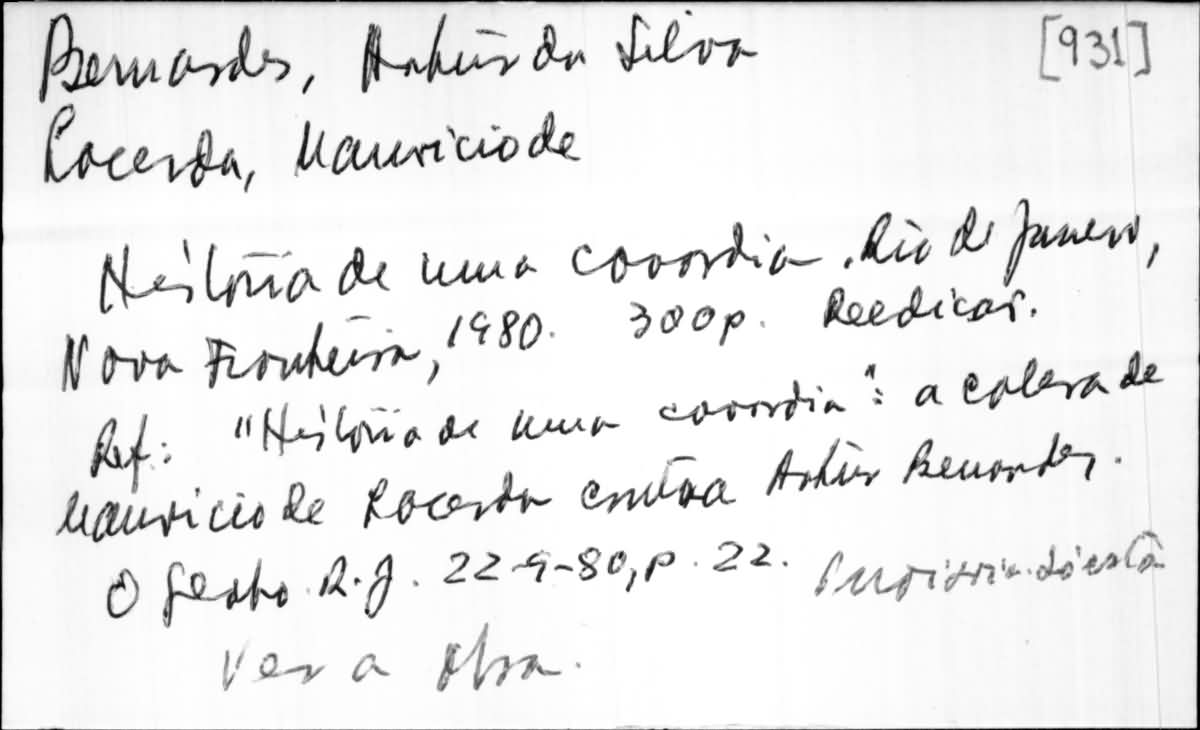 Bernardes, Artur da Silva [931]
Lacerda, Mauricio de
História de uma covardia. Rio de Janeiro,
Nova Fronteira, 1980. 300p. Reedicao.
Ref.: "História de uma covardia": a colera de
Mauricio de Lacerda contra Artur Bernardes.
O Globo. R.J. 22-9-80, p. 22.
Ver a obra.